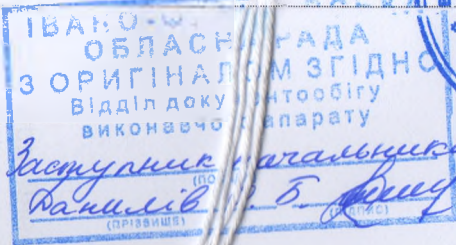 ІВАНО-Ф
ОБЛАСН РАДА
З ОРИГІНАЛОМ ЗГІДНО
Відділ доку ентообігу
виконавчо апарату
Заступник начальника
(ПО
Данилів . Б.
(ПРІЗВИЩЕ) ПИС)